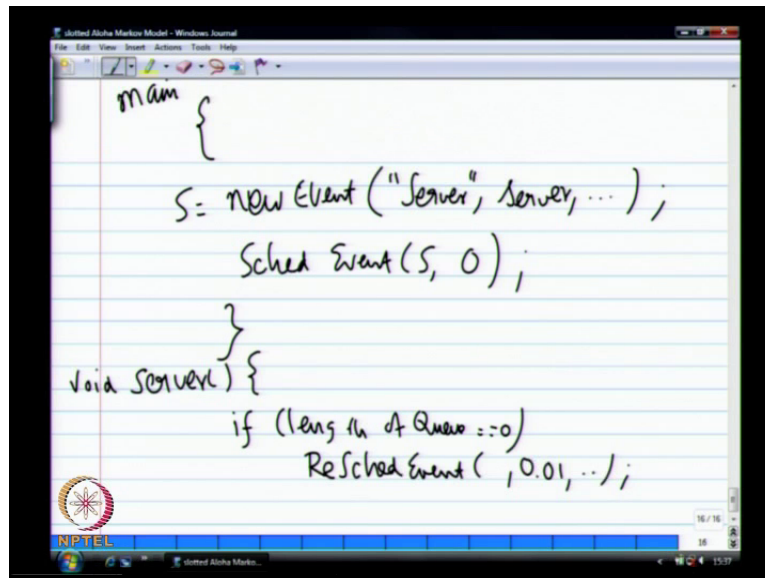 slotted Aloha Markov Model - Windows Journal
File Edit View Insert Actions Tools Help
main
{
S= new Event ("Server", server, ...);
Sched Event (S, 0);
}
void server() {
if (length of Queue ==0)
ReSched Event ( , 0.01, ..);
16 / 16
16
NPTEL
slotted Aloha Marko...
15:37